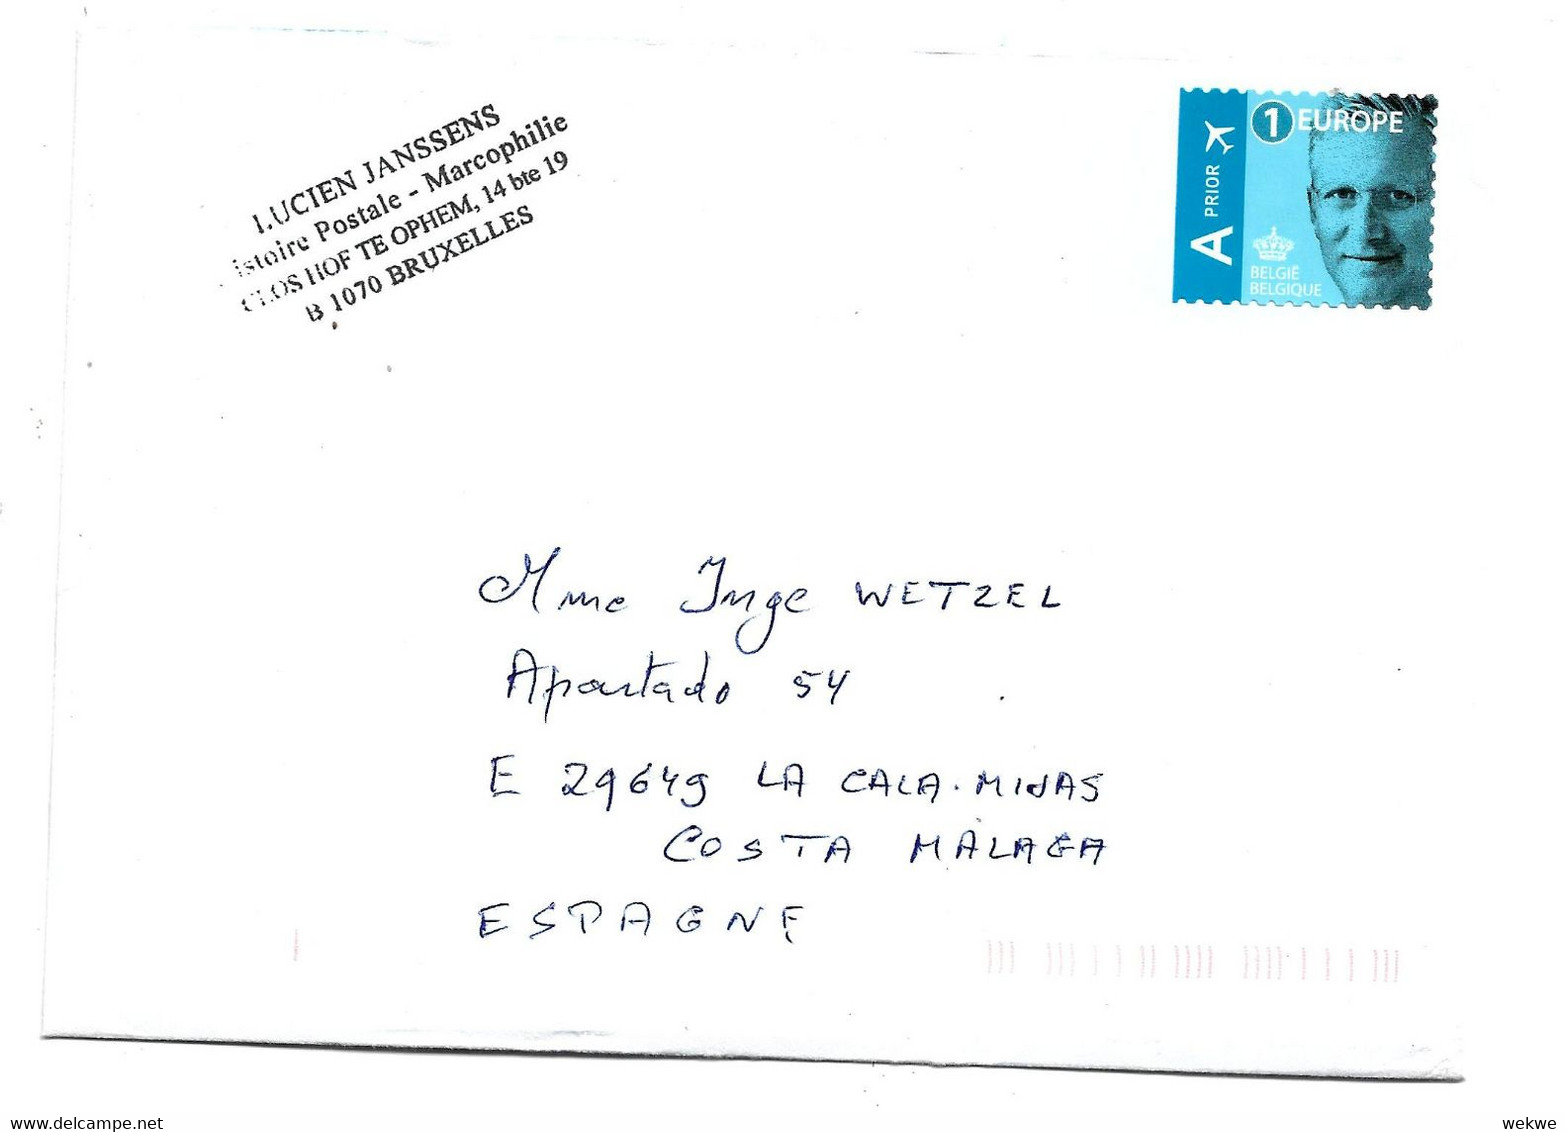 LUCIEN JANSSENS
istoire Postale - Marcophilie
CLOS HOF TE OPHEM, 14 bte 19
B 1070 BRUXELLES
1 EUROPE
A PRIOR
BELGIË
BELGIQUE
Mme Inge WETZEL
Apartado 54
E 29649 LA CALA. MIJAS
COSTA MÁLAGA
ESPAGNE
www.delcampe.net
wekwe